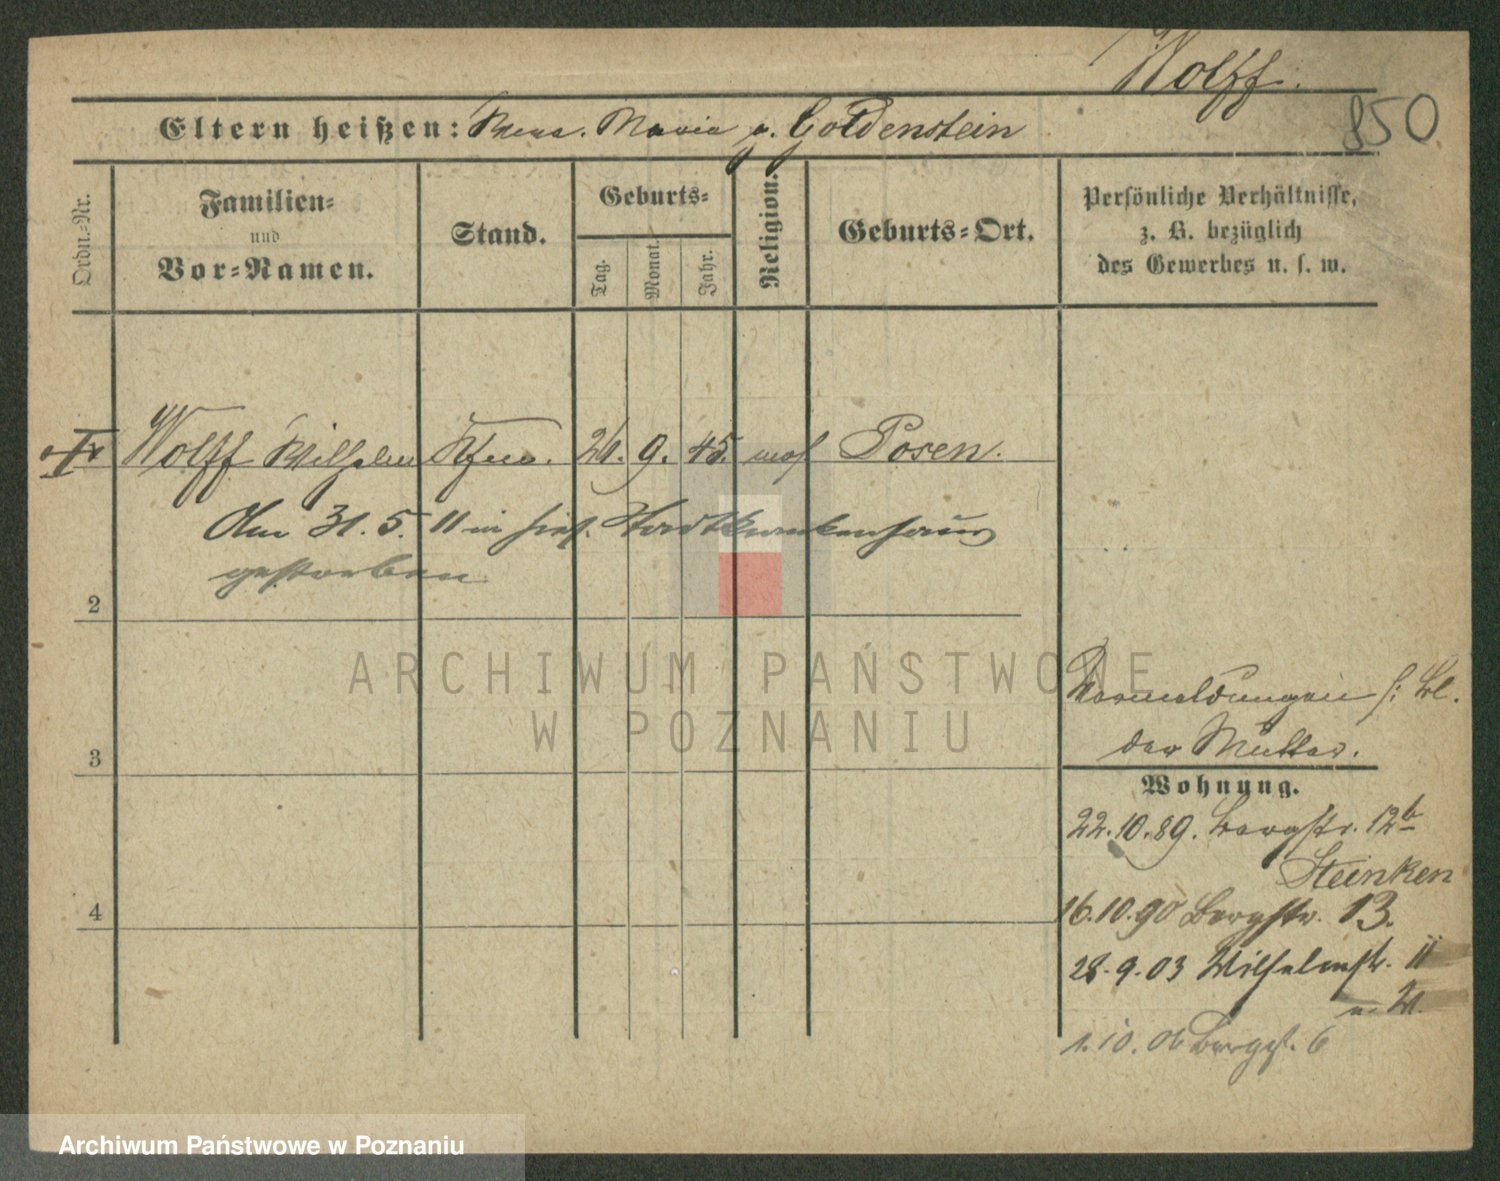 Wolff.
850
Eltern heißen: Maria u. Goldenstein
Ordn.-Nr.
Familien-
und
Vor-Namen.
Stand.
Geburts-
Tag.
Monat.
Jahr.
Religion.
Geburts-Ort.
Persönliche Verhältnisse,
z. B. bezüglich
des Gewerbes u. s. w.
Wolff Wilhelm Kfm. 9. 45. mos Posen.
Am 31. 5. 11 in hies. Stadtkrankenhaus
gestorben
2
ARCHIWUM PAŃSTWOWE
W POZNANIU
Vormeldungen s: Bl.
der Mutter.
3
Wohnung.
22. 10. 89. Bergstr. 12b
Steinken
4
16. 10. 90 Bergstr. 13.
28. 9. 03 Wilhelmstr. 11
1. 10. 06 Bergst. 6
Archiwum Państwowe w Poznaniu